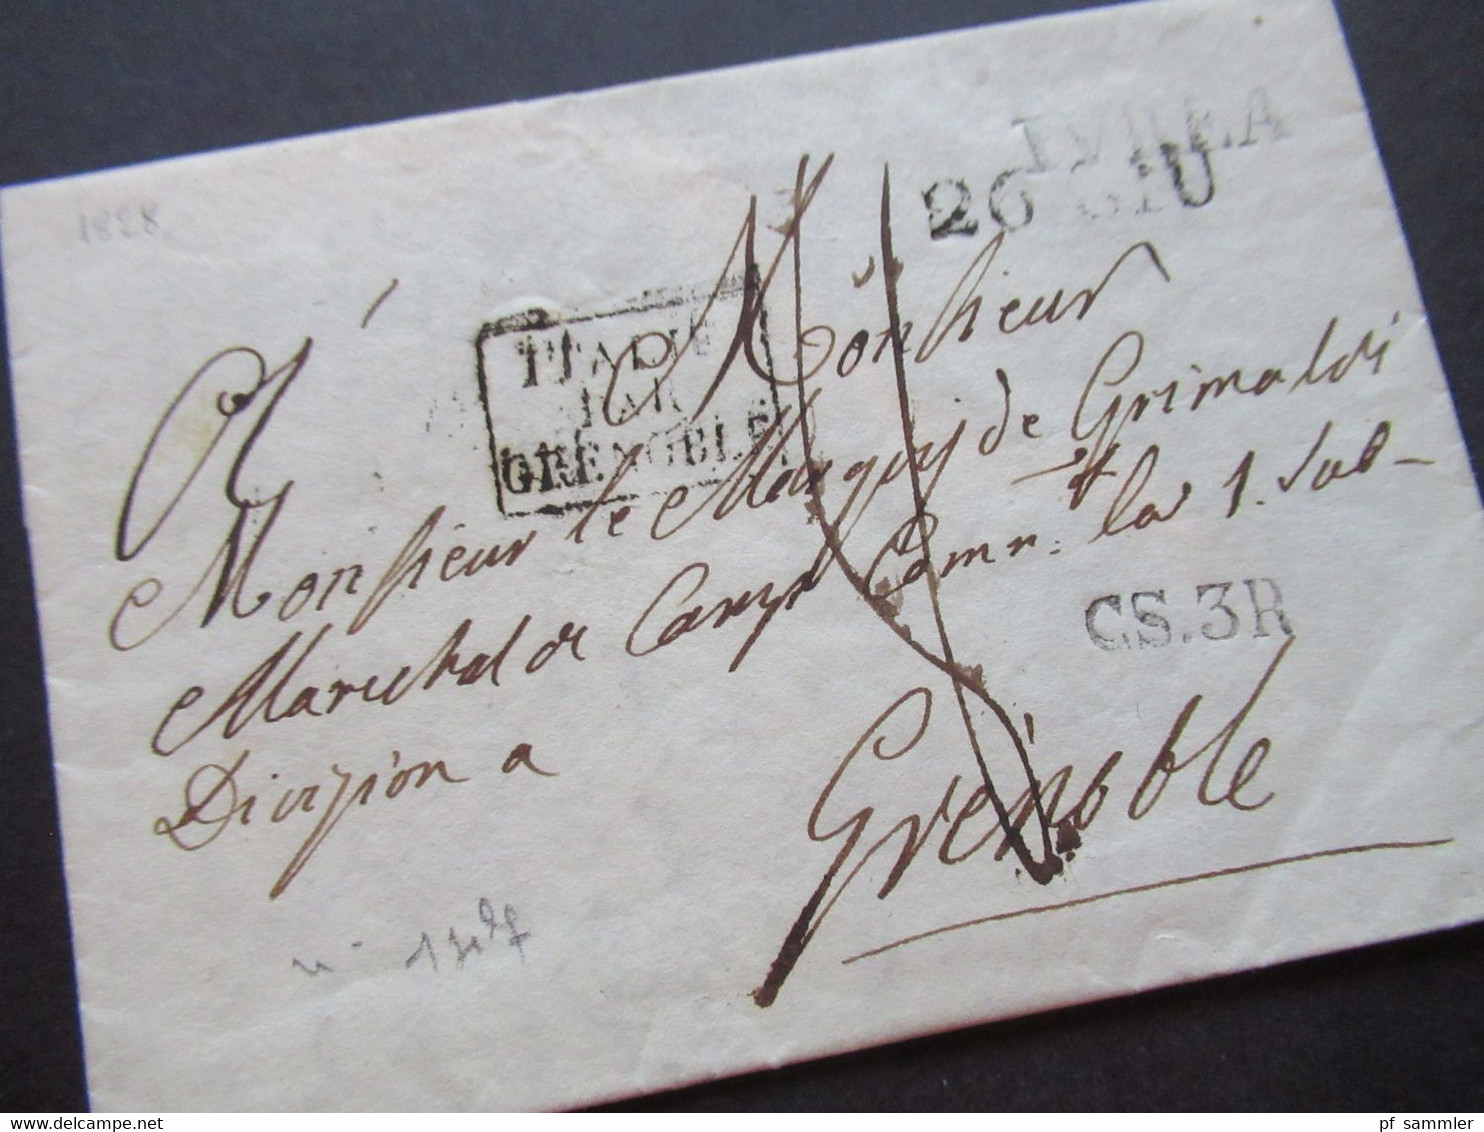 1828
IVREA
26 GIU
PIÉMONT
PAR
GRENOBLE
A Monsieur
Monsieur le Marquis de Grimaldi
Marechal de Camp Comm. la 1. Sub-
Division a
C.S.3R
Grenoble
pf sammler